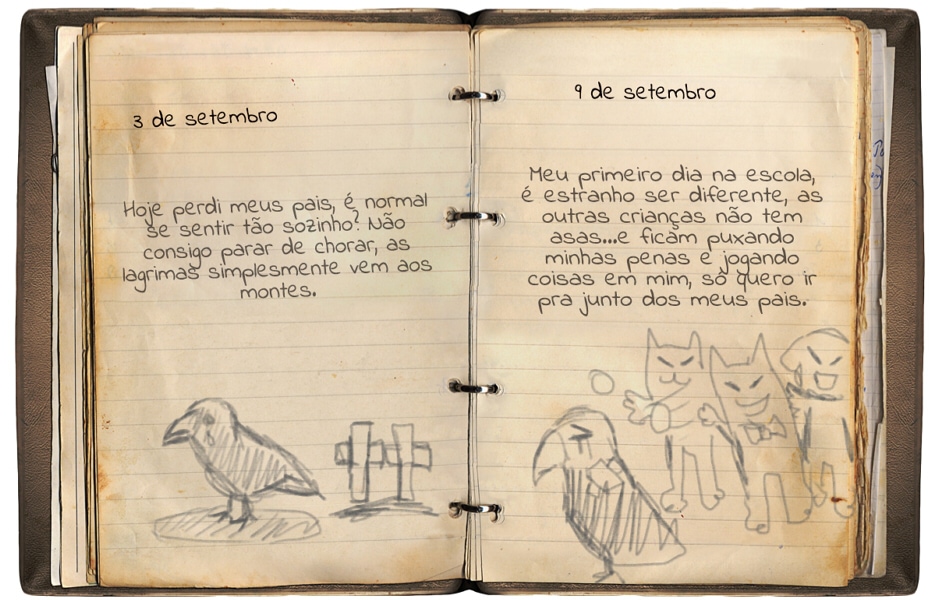 3 de setembro
Hoje perdi meus pais, é normal
se sentir tão sozinho? Não
consigo parar de chorar, as
lagrimas simplesmente vem aos
montes.
9 de setembro
Meu primeiro dia na escola,
é estranho ser diferente, as
outras crianças não tem
asas...e ficam puxando
minhas penas e jogando
coisas em mim, só quero ir
pra junto dos meus pais.